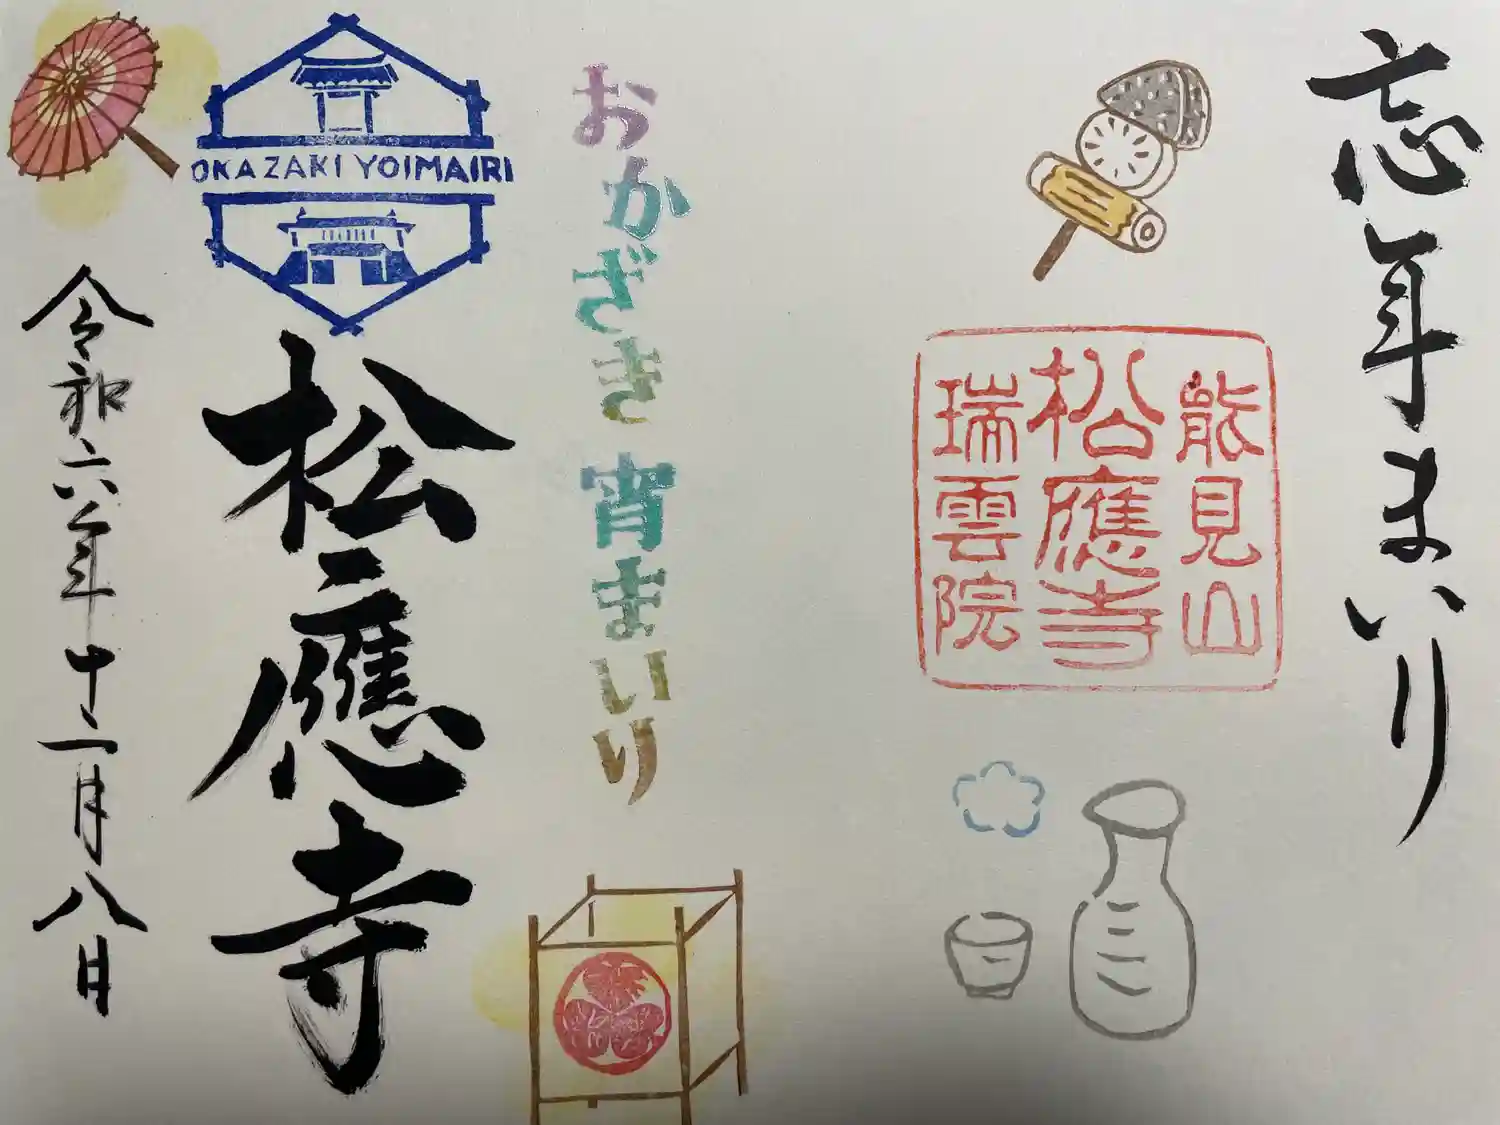 忘年まいり
能見山
松應寺
瑞雲院
おかざき 宵まいり
OKAZAKI YOIMAIRI
松應寺
令和六年十二月八日